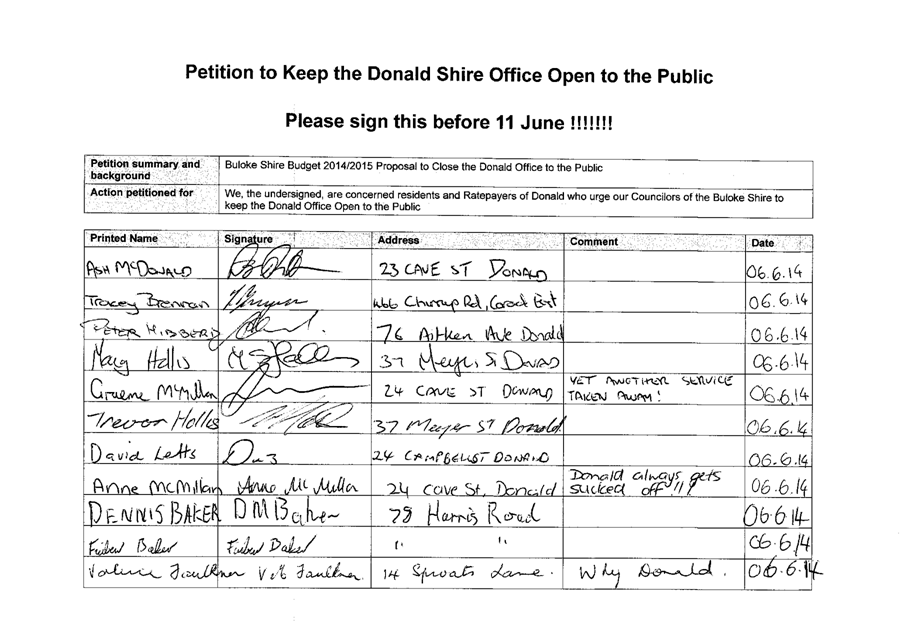 Petition to Keep the Donald Shire Office Open to the Public
Please sign this before 11 June !!!!!!!
Petition summary and background Buloke Shire Budget 2014/2015 Proposal to Close the Donald Office to the Public
Action petitioned for We, the undersigned, are concerned residents and Ratepayers of Donald who urge our Councilors of the Buloke Shire to
keep the Donald Office Open to the Public
Printed Name Signature Address Comment Date
ASH McDONALD 23 CAVE ST DONALD 06.6.14
Tracey Brennan Rd, 06.6.14
PETER HIBBERD 76 Aitken Ave Donald 06.6.14
Marg Hollis 37 Meyer St Donald 06.6.14
Graeme McMillan 24 CAVE ST DONALD YET ANOTHER SERVICE TAKEN AWAY! 06.6.14
Trevor Hollis 37 Meyer ST Donald 06.6.14
David Letts 24 CAMPBELL ST DONALD 06.6.14
Anne McMillan Anne McMillan 24 Cave St, Donald Donald always gets sucked off !!! 06.6.14
DENNIS BAKER DM Baker 78 Harris Road 06.6.14
Baker Baker " " 06.6.14
Valerie Faulkner V M Faulkner 14 Sproats Lane. Why Donald. 06.6.14